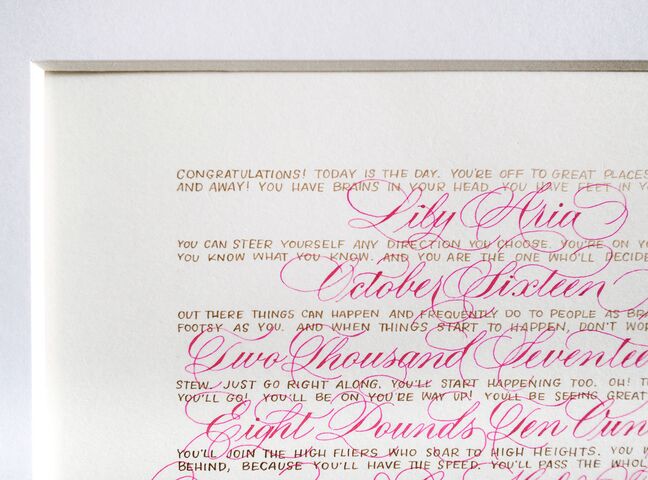 CONGRATULATIONS! TODAY IS THE DAY. YOU'RE OFF TO GREAT PLACES
AND AWAY! YOU HAVE BRAINS IN YOUR HEAD. YOU HAVE FEET IN
Lily Aria
YOU CAN STEER YOURSELF ANY DIRECTION YOU CHOOSE. YOU'RE ON
YOU KNOW WHAT YOU KNOW. AND YOU ARE THE ONE WHO'LL DECIDE
October Sixteen
OUT THERE THINGS CAN HAPPEN AND FREQUENTLY DO TO PEOPLE AS
FOOTSY AS YOU. AND WHEN THINGS START TO HAPPEN, DON'T
Two Thousand Seventee
STEW. JUST GO RIGHT ALONG. YOU'LL START HAPPENING TOO. OH!
YOU'LL GO! YOU'LL BE ON YOU'RE WAY UP! YOU'LL BE SEEING GREAT
Eight Pounds Ten Oun
YOU'LL JOIN THE HIGH FLIERS WHO SOAR TO HIGH HEIGHTS. YOU
BEHIND, BECAUSE YOU'LL HAVE THE SPEED. YOU'LL PASS THE WHOL